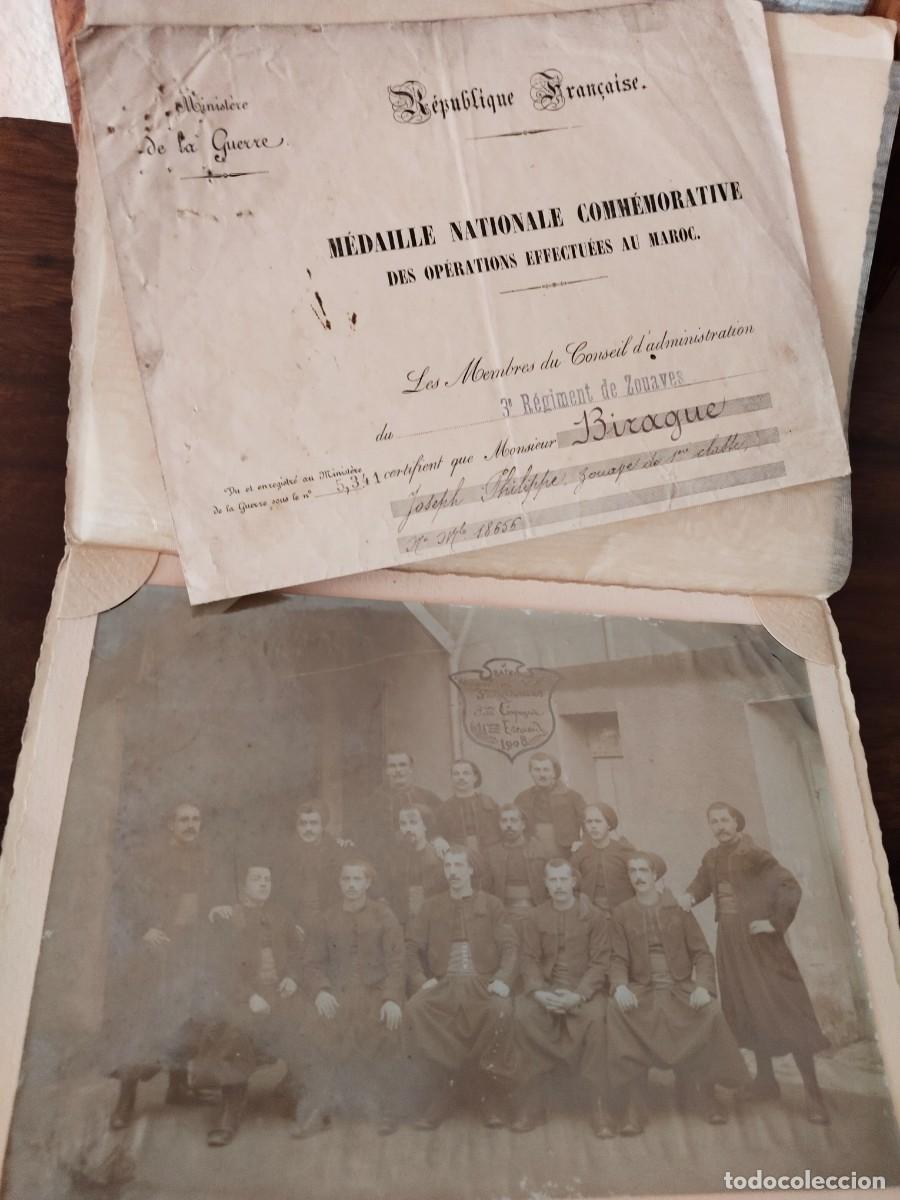 Ministère
de la Guerre.
République Française.
MÉDAILLE NATIONALE COMMÉMORATIVE
DES OPÉRATIONS EFFECTUÉES AU MAROC.
Les Membres du Conseil d'administration
du 3e Régiment de Zouaves
certifient que Monsieur Birague
Joseph Philippe, zouave de 1re classe,
No Mle 18656
Vu et enregistré au Ministère
de la Guerre sous le no 5,341
3me Compagnie
11me Escouade
1908
todocoleccion